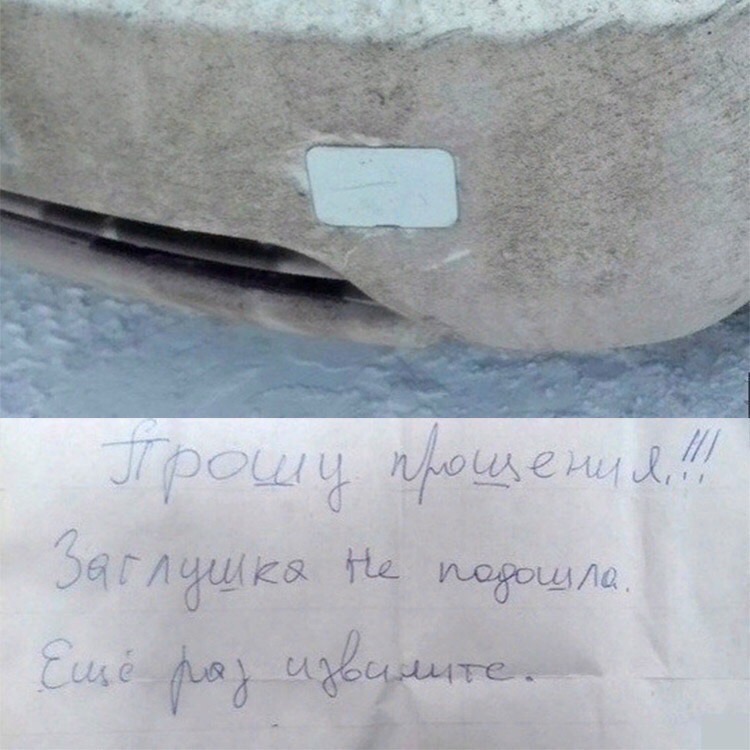 Прошу прощения!!!
Заглушка не подошла.
Ещё раз извините.